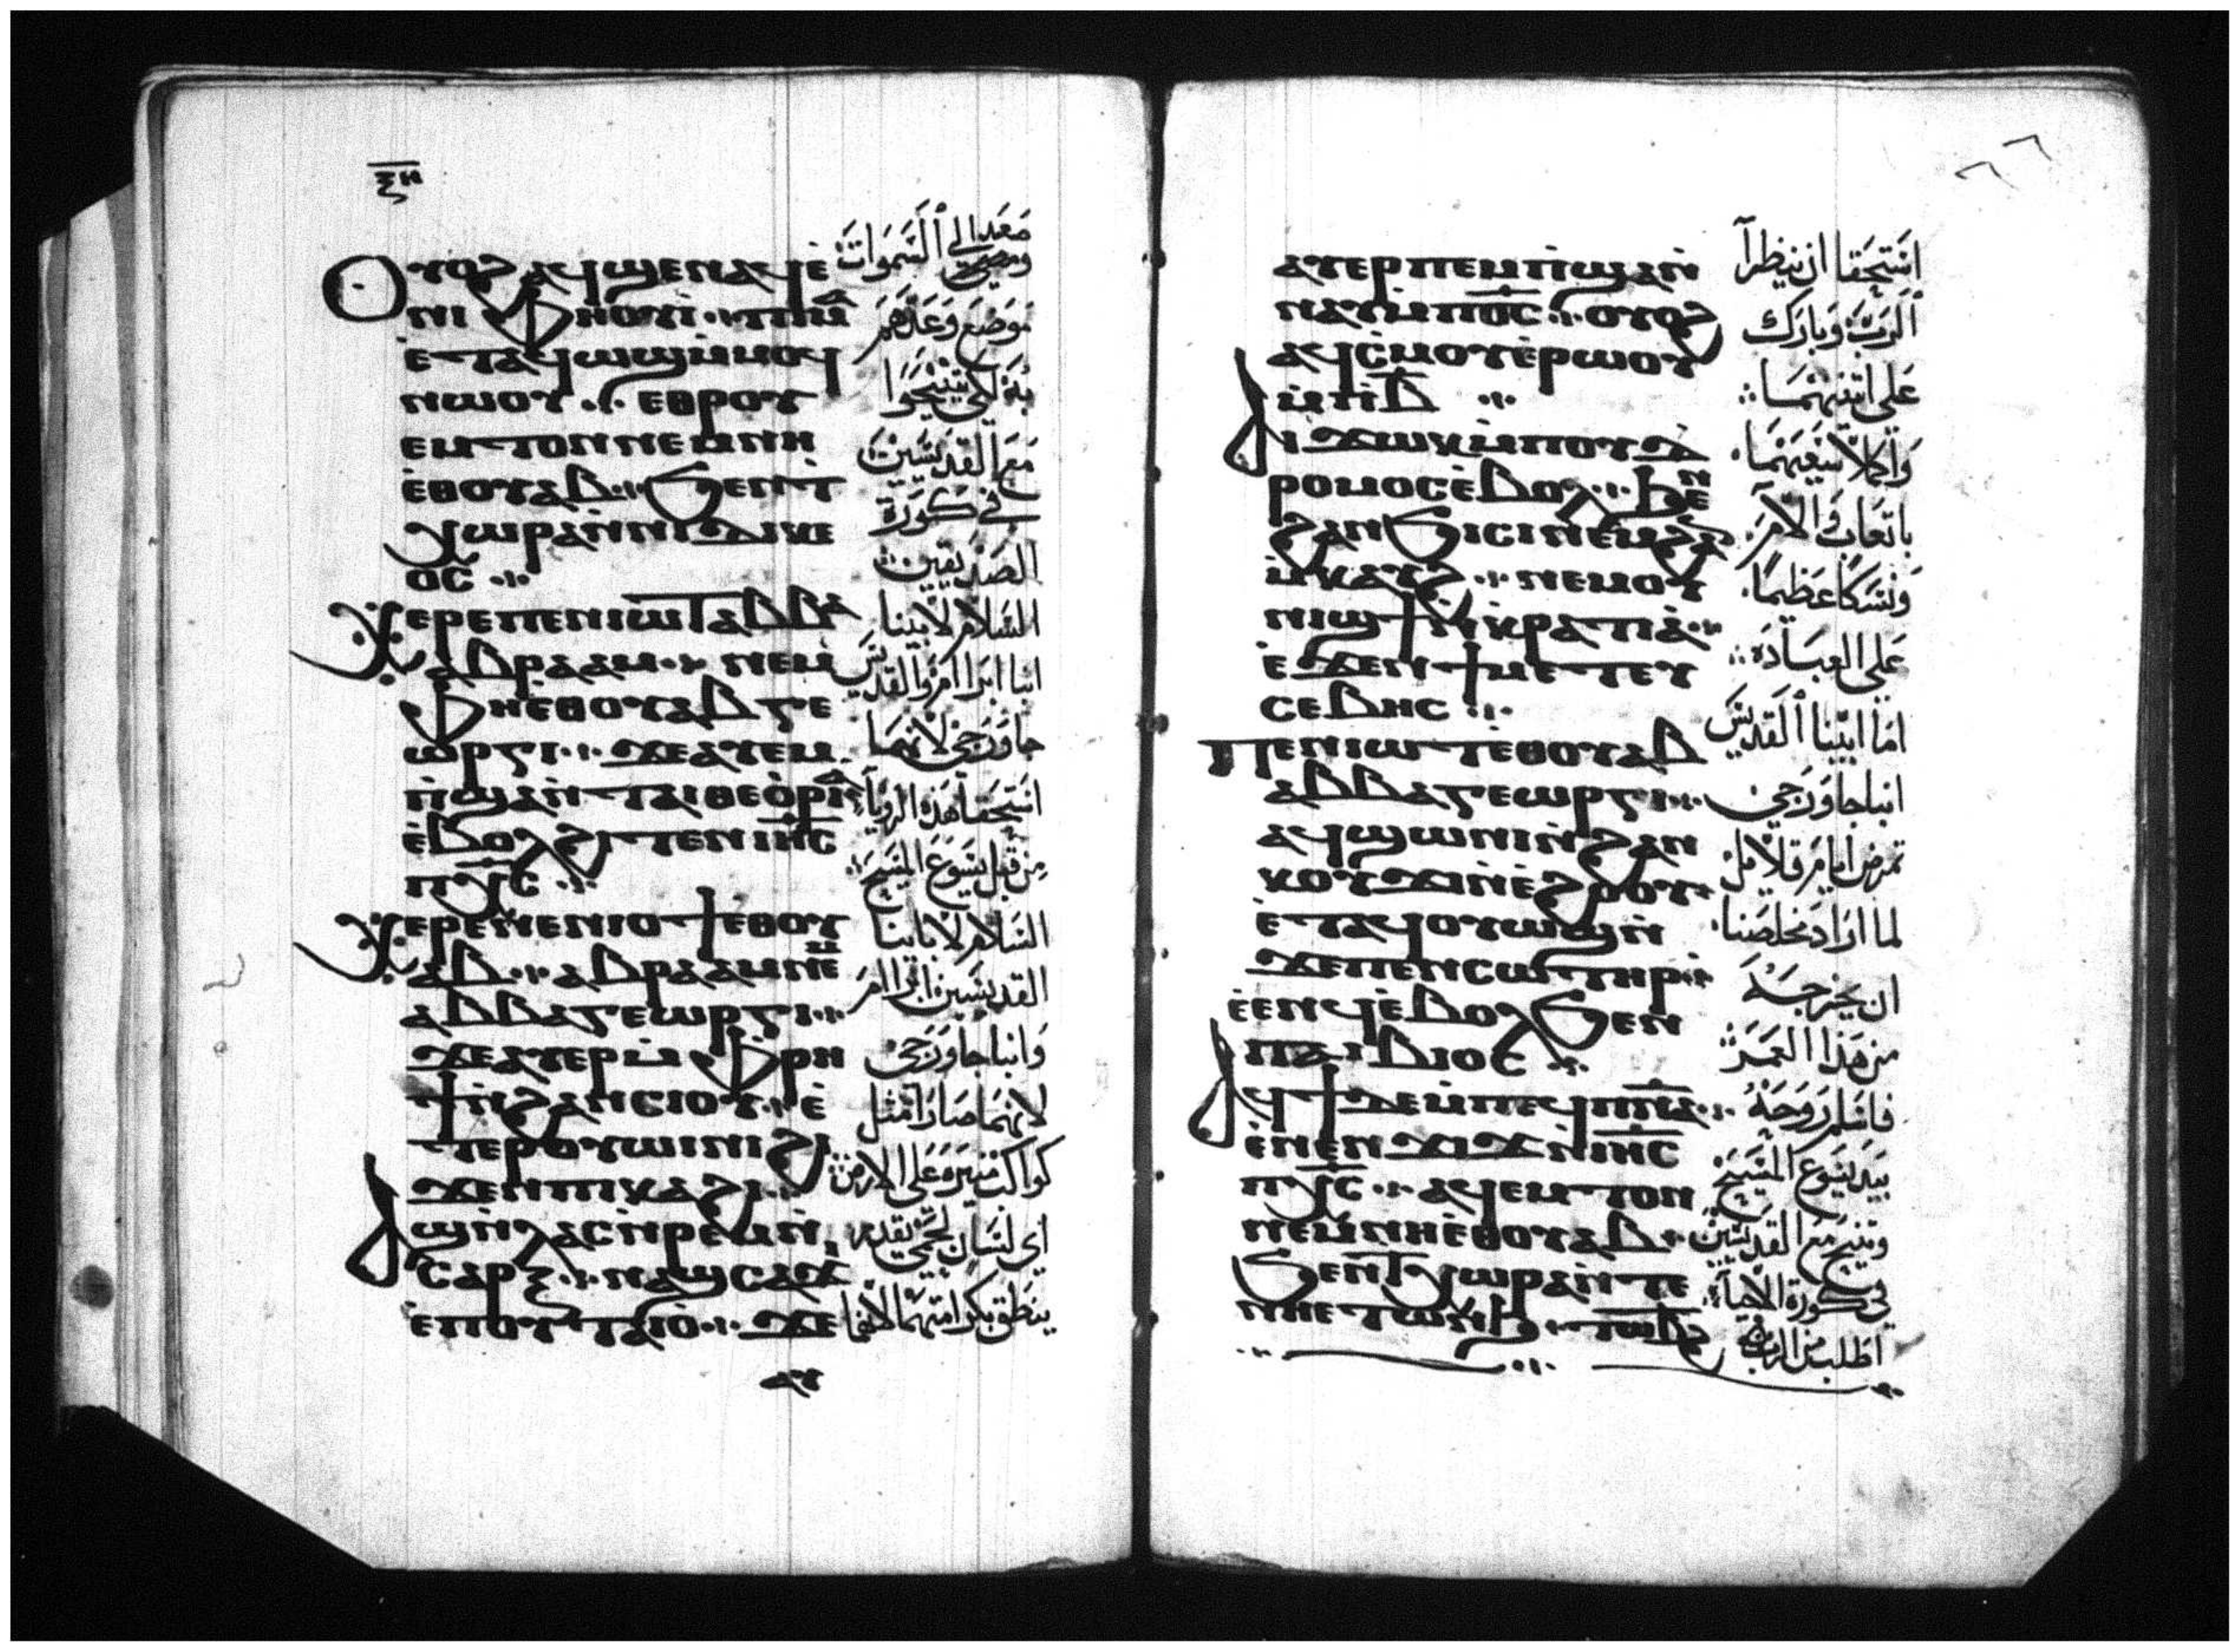 ⲝⲏ
Ⲟⲩⲟϩ ⲁϥϣⲉⲛⲁϥ ⲉ̀
ⲛⲓⲫⲏⲟⲩⲓ̀ ⲡⲓⲙⲁ
ⲉ̀ⲧⲁϥⲱϣ ⲙ̀ⲙⲟϥ
ⲛⲱⲟⲩ ⲉⲑⲣⲟⲩ
ⲉⲙⲧⲟⲛ ⲛⲉⲙ ⲛⲏ
ⲉ̀ⲑⲟⲩⲁⲃ ϧⲉⲛ ⲧ̀
ⲭⲱⲣⲁ ⲛ̀ⲛⲓⲇⲓⲕⲉ
ⲟⲥ
Ⲭⲉⲣⲉ ⲡⲉⲛⲓⲱⲧ ⲁⲃⲃⲁ
ⲁⲃⲣⲁⲁⲙ ⲛⲉⲙ
ⲫⲏⲉ̀ⲑⲟⲩⲁⲃ ⲅⲉ
ⲱⲣⲅⲓ ϫⲉ ⲁⲩⲉⲙ
ⲡ̀ϣⲁ ⲛ̀ⲧⲁⲓⲑⲉⲟ̀ⲣⲓⲁ̀
ⲉ̀ⲃⲟⲗ ϩⲓⲧⲉⲛ ⲓⲏⲥ
ⲡⲭⲥ
Ⲭⲉⲣⲉ ⲛⲉⲛⲓⲟϯ ⲉⲑⲟⲩ
ⲁⲃ ⲁⲃⲣⲁⲁⲙ ⲛⲉⲙ
ⲁⲃⲃⲁ ⲅⲉⲱⲣⲅⲓ
ϫⲉ ⲁⲩⲉⲣ ⲙ̀ⲫⲣⲏ
ϯ ⲛ̀ϩⲁⲛⲥⲓⲟⲩ ⲉ̀
ⲧⲉⲣⲟⲩⲱⲓⲛⲓ ϩⲓ
ϫⲉⲛ ⲡⲓⲕⲁϩⲓ
Ⲁϣ ⲛ̀ⲗⲁⲥ ⲛ̀ⲣⲉⲙⲛ̀
ⲥⲁⲣⲝ ⲛⲁϣⲥⲁϫⲓ
ⲉ̀ⲡⲟⲩⲧⲁⲓⲟ̀ ϫⲉ
ⲁⲩ
صَعَد الى ٱلسَّمَوَات
ومضى
مَوضَع وَعَدهُم
بهِ لكي يتنيّحَوا
مَع القدّيسَين
في كورَة
الصدّيقين
السَّلام لابينا
انبا ابرَاام وَالقدّيس
جَاوَرجي لانهمَا
استَحقا هَذه الرويَا
مِن قبَل يسَوع المسيح
السَّلام لابَاينا
القديسَين ابرَاام
وَانبا جَاوَرَجي
لانهمَا صَارَا مثل
كوَاكب منيرَه عَلى الارض
اي لسَان لحمي يقدر
ينطق بكرَامتهمَا لانهَا
ⲁⲩⲉⲣⲡⲉⲙⲡ̀ϣⲁ ⲛ̀
ⲛⲁⲩ ⲙ̀ⲡϭⲥ ⲟⲩⲟϩ
ⲁϥⲥ̀ⲙⲟⲩ ⲉ̀ⲣⲱⲟⲩ
ⲙ̀ⲡⲓⲃ̅
Ⲁⲩϫⲱⲕ ⲙ̀ⲡⲟⲩⲇ
ⲣⲟⲙⲟⲥ ⲉ̀ⲃⲟⲗ ϧⲉⲛ
ϩⲁⲛϧⲓⲥⲓ ⲛⲉⲙ ϩⲁⲛ
ⲙ̀ⲕⲁⲩϩ ⲛⲉⲙ ⲟⲩ
ⲛⲓϣϯ ⲛ̀ⲕ̀ⲣⲁⲧⲓⲁ̀
ⲉ̀ϫⲉⲛ ϯⲙⲉⲧⲉⲩ
ⲥⲉⲃⲏⲥ
Ⲡⲉⲛⲓⲱⲧ ⲉ̀ⲑⲟⲩⲁⲃ
ⲁⲃⲃⲁ ⲅⲉⲱⲣⲅⲓ
ⲁϥϣⲱⲛⲓ ⲛ̀ϩⲁⲛ
ⲕⲟⲩϫⲓ ⲛ̀ⲉ̀ϩⲟⲟⲩ
ⲉ̀ⲧⲁϥⲟⲩⲱϣ ⲛ̀
ϫⲉ ⲡⲉⲛⲥⲱⲧⲏⲣ
ⲉ̀ⲉⲛϥ ⲉ̀ⲃⲟⲗ ϧⲉⲛ
ⲡⲁⲓⲃⲓⲟⲥ
Ⲁϥϯ ⲇⲉ ⲙ̀ⲡⲉϥⲡⲛⲁ̅
ⲉ̀ⲛⲉⲛϫⲓϫ ⲛ̀ⲓⲏⲥ
ⲡⲭⲥ ⲁϥⲉⲙⲧⲟⲛ
ⲛⲉⲙ ⲛⲏⲉ̀ⲑⲟⲩⲁⲃ
ϧⲉⲛ ⲧ̀ⲭⲱⲣⲁ ⲛ̀ⲧⲉ
ⲛⲏⲉⲧⲱⲛϧ ⲧⲱⲃϩ
استَحَقا ان ينظرَا
ٱلرَبّ وَبارَك
عَلى اثنَيْهمَا
وَاكملا سَعيَهمَا
باتعَاب وَالام
وَنسكًا عَظيمًا
عَلى العبَادَه
امَا ابينا ٱلقَديسَ
انبا جَاوَرَجي
تمرض ايامَ قلايل
لما ارَاد مخلصَنا
ان يخرجَهُ
من هَذا العمَر
فاسَلم رَوحَهُ
بيَد يسَوع المسَيح
وتنيح مَع القديسَين
في كورة الاحيَآء
اطلب من الرب